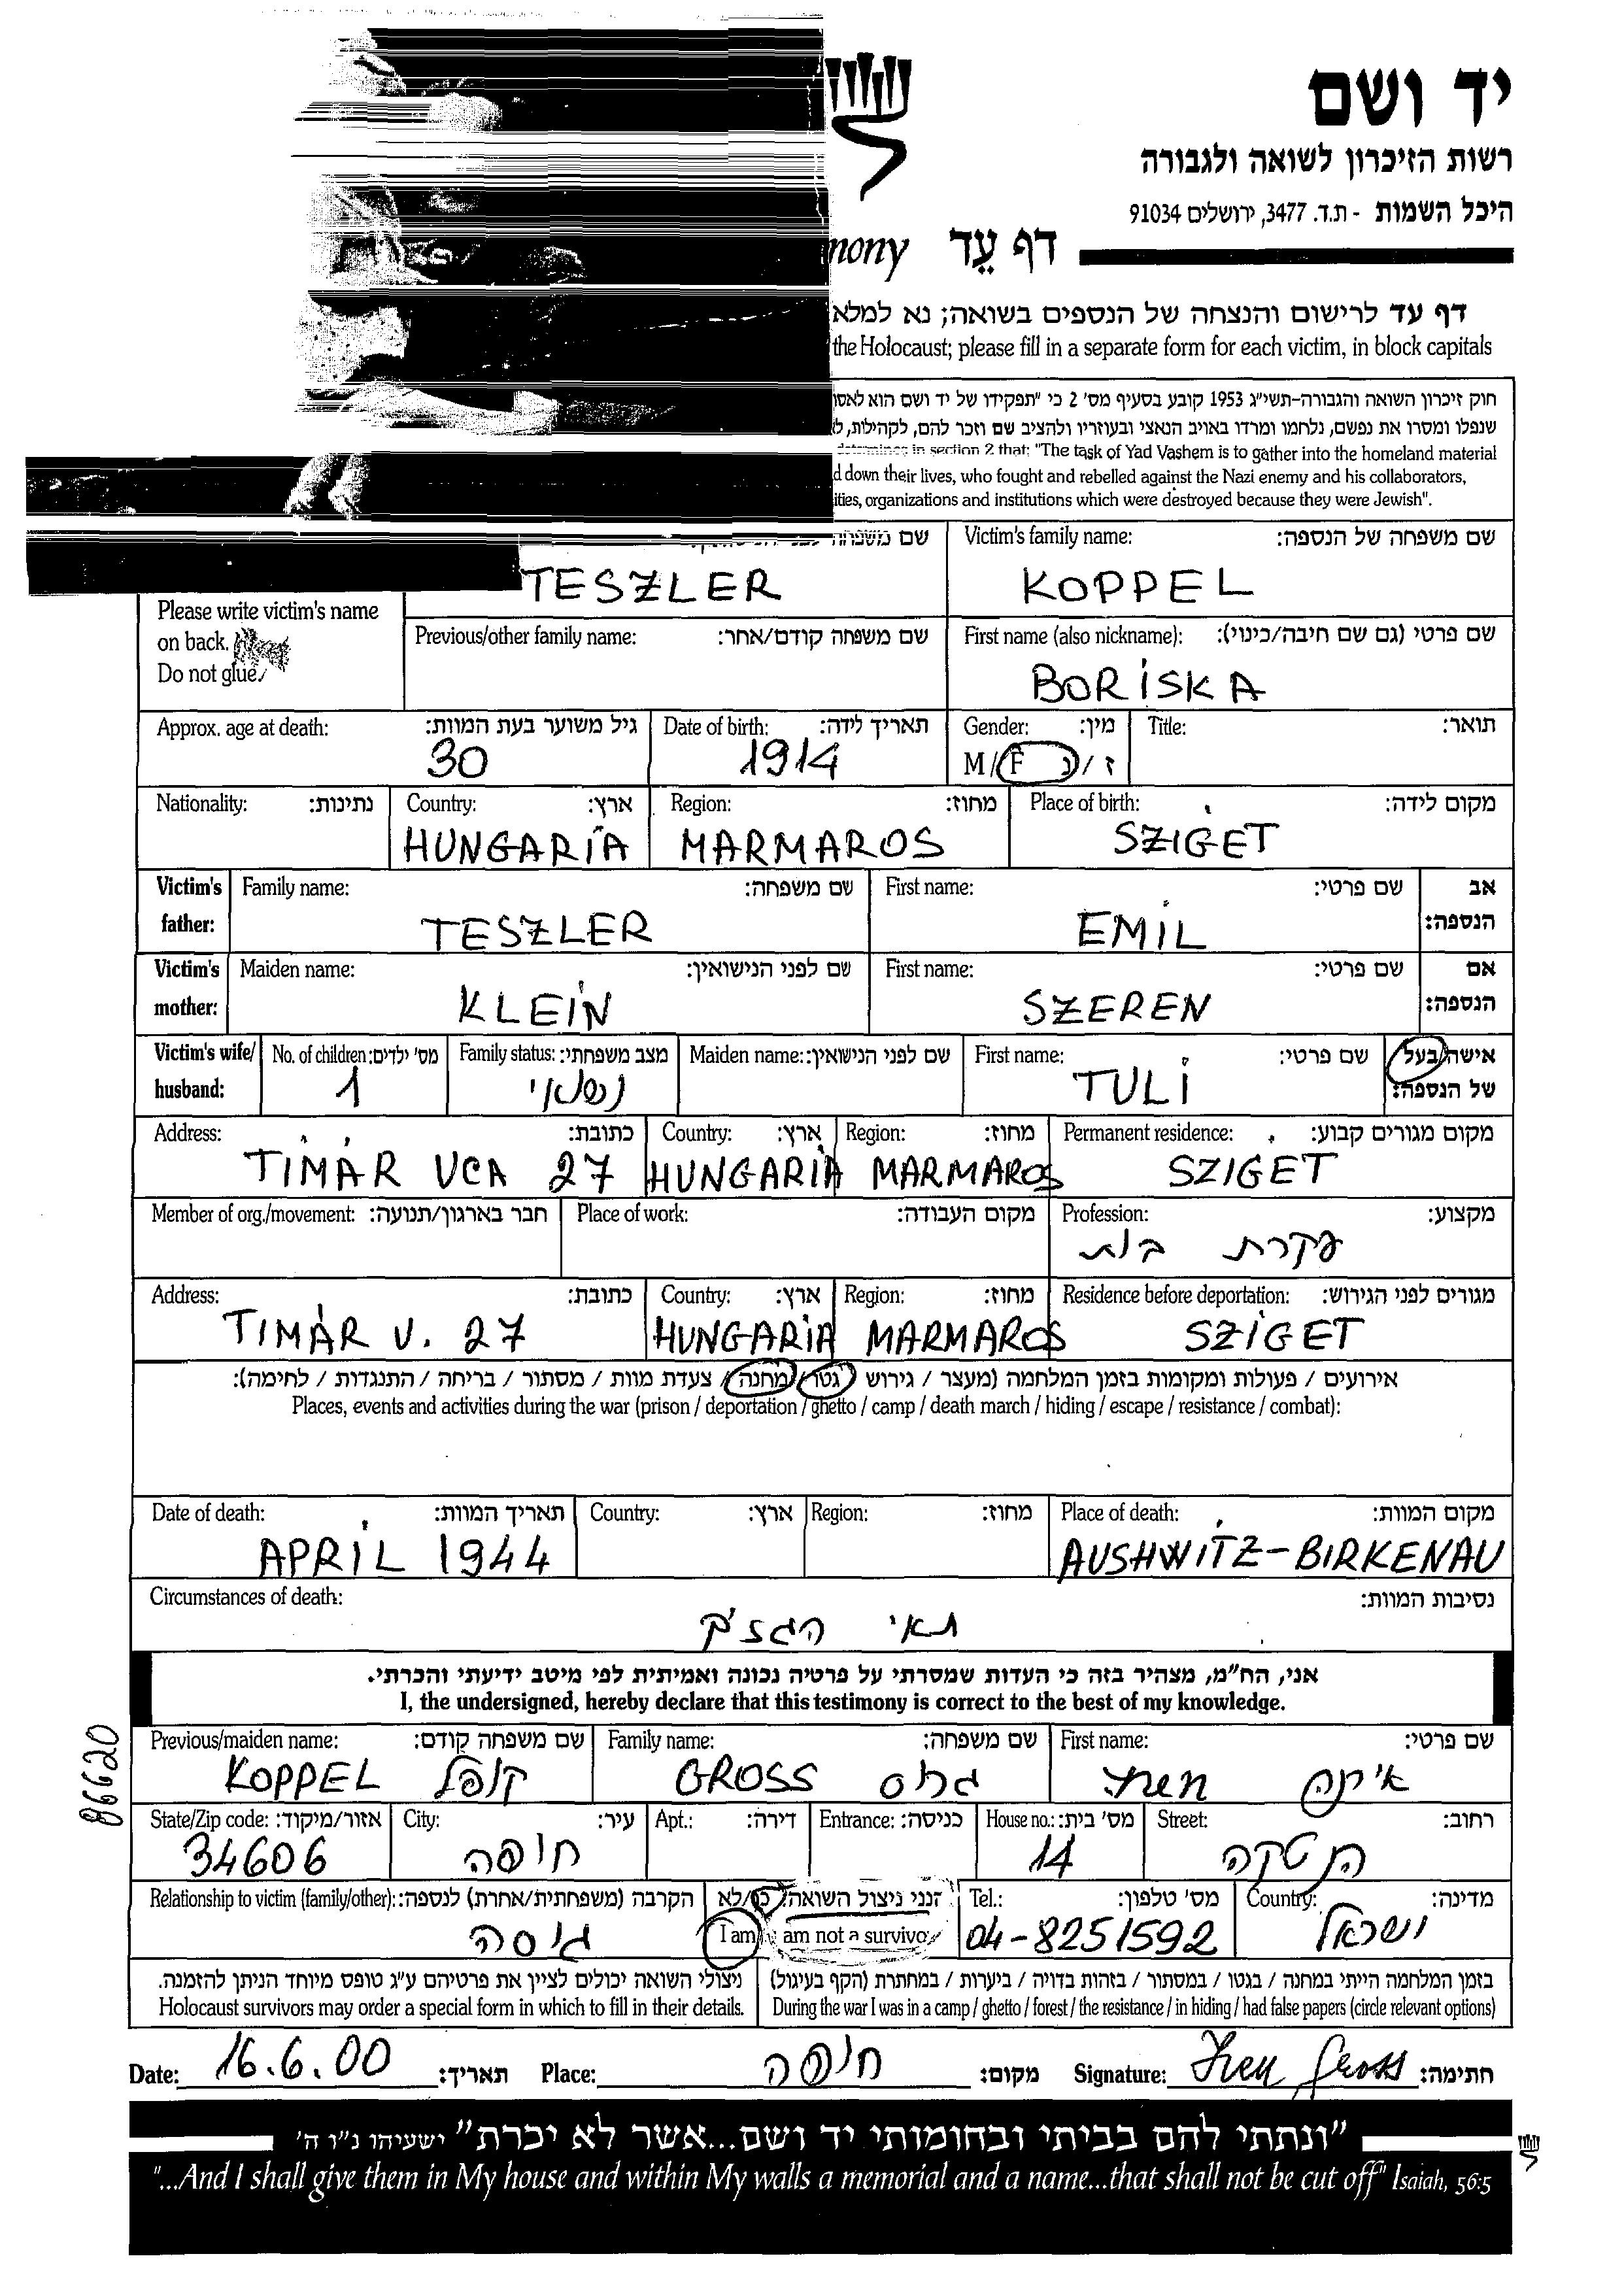 יד ושם
רשות הזיכרון לשואה ולגבורה
היכל השמות - ת.ד. 3477, ירושלים 91034
דף עֵד mony
דף עד לרישום והנצחה של הנספים בשואה; נא למלא
the Holocaust; please fill in a separate form for each victim, in block capitals
חוק זיכרון השואה והגבורה-תשי"ג 1953 קובע בסעיף מס' 2 כי "תפקידו של יד ושם הוא לאסו
שנפלו ומסרו את נפשם, נלחמו ומרדו באויב הנאצי ובעוזריו ולהציב שם וזכר להם, לקהילות, ל
determines in section 2 that: "The task of Yad Vashem is to gather into the homeland material
d down their lives, who fought and rebelled against the Nazi enemy and his collaborators,
ities, organizations and institutions which were destroyed because they were Jewish".
שם משפחה Victim's family name: שם משפחה של הנספה:
TESZLER KOPPEL
Please write victim's name
on back.
Do not glue.
Previous/other family name: שם משפחה קודם/אחר: First name (also nickname): שם פרטי (גם שם חיבה/כינוי):
BORISKA
Approx. age at death: גיל משוער בעת המוות: Date of birth: תאריך לידה: Gender: מין: Title: תואר:
30 1914 M/F ז/נ
Nationality: נתינות: Country: ארץ: Region: מחוז: Place of birth: מקום לידה:
HUNGARIA MARMAROS SZIGET
Victim's father: Family name: שם משפחה: First name: שם פרטי: אב הנספה:
TESZLER EMIL
Victim's mother: Maiden name: שם לפני הנישואין: First name: שם פרטי: אם הנספה:
KLEIN SZEREN
Victim's wife/husband: No. of children: מס' ילדים: Family status: מצב משפחתי: Maiden name: שם לפני הנישואין: First name: שם פרטי: אישה/בעל של הנספה:
1 נשואי TULI
Address: כתובת: Country: ארץ: Region: מחוז: Permanent residence: מקום מגורים קבוע:
TIMÁR UCA 27 HUNGARIA MARMAROS SZIGET
Member of org./movement: חבר בארגון/תנועה: Place of work: מקום העבודה: Profession: מקצוע:
עקרת בית
Address: כתובת: Country: ארץ: Region: מחוז: Residence before deportation: מגורים לפני הגירוש:
TIMÁR U. 27 HUNGARIA MARMAROS SZIGET
אירועים / פעולות ומקומות בזמן המלחמה (מעצר / גירוש / גטו / מחנה / צעדת מוות / מסתור / בריחה / התנגדות / לחימה):
Places, events and activities during the war (prison / deportation / ghetto / camp / death march / hiding / escape / resistance / combat):
Date of death: תאריך המוות: Country: ארץ: Region: מחוז: Place of death: מקום המוות:
APRIL 1944 AUSHWITZ-BIRKENAU
Circumstances of death: נסיבות המוות:
תאי הגזים
אני, הח"מ, מצהיר בזה כי העדות שמסרתי על פרטיה נכונה ואמיתית לפי מיטב ידיעתי והכרתי.
I, the undersigned, hereby declare that this testimony is correct to the best of my knowledge.
86620
Previous/maiden name: שם משפחה קודם: Family name: שם משפחה: First name: שם פרטי:
KOPPEL קופל GROSS גרוס
State/Zip code: אזור/מיקוד: City: עיר: Apt.: דירה: Entrance: כניסה: House no.: מס' בית: Street: רחוב:
34606 חיפה 14
Relationship to victim (family/other): הקרבה (משפחתית/אחרת) לנספה: הנני ניצול השואה: כן/לא Tel.: מס' טלפון: Country: מדינה:
גיסה I am am not a survivo 04-8251592 ישראל
ניצולי השואה יכולים לציין את פרטיהם ע"ג טופס מיוחד הניתן להזמנה. בזמן המלחמה הייתי במחנה / בגטו / במסתור / בזהות בדויה / ביערות / במחתרת (הקף בעיגול)
Holocaust survivors may order a special form in which to fill in their details. During the war I was in a camp / ghetto / forest / the resistance / in hiding / had false papers (circle relevant options)
Date: 16.6.00 תאריך: Place: חיפה מקום: Signature: Iren Gross חתימה:
"ונתתי להם בביתי ובחומותי יד ושם...אשר לא יכרת" ישעיהו נ"ו ה'
"...And I shall give them in My house and within My walls a memorial and a name...that shall not be cut off" Isaiah, 56:5